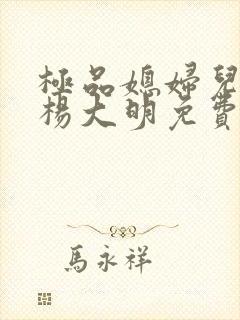 極品媳婦兒
楊大明免費
馬永祥